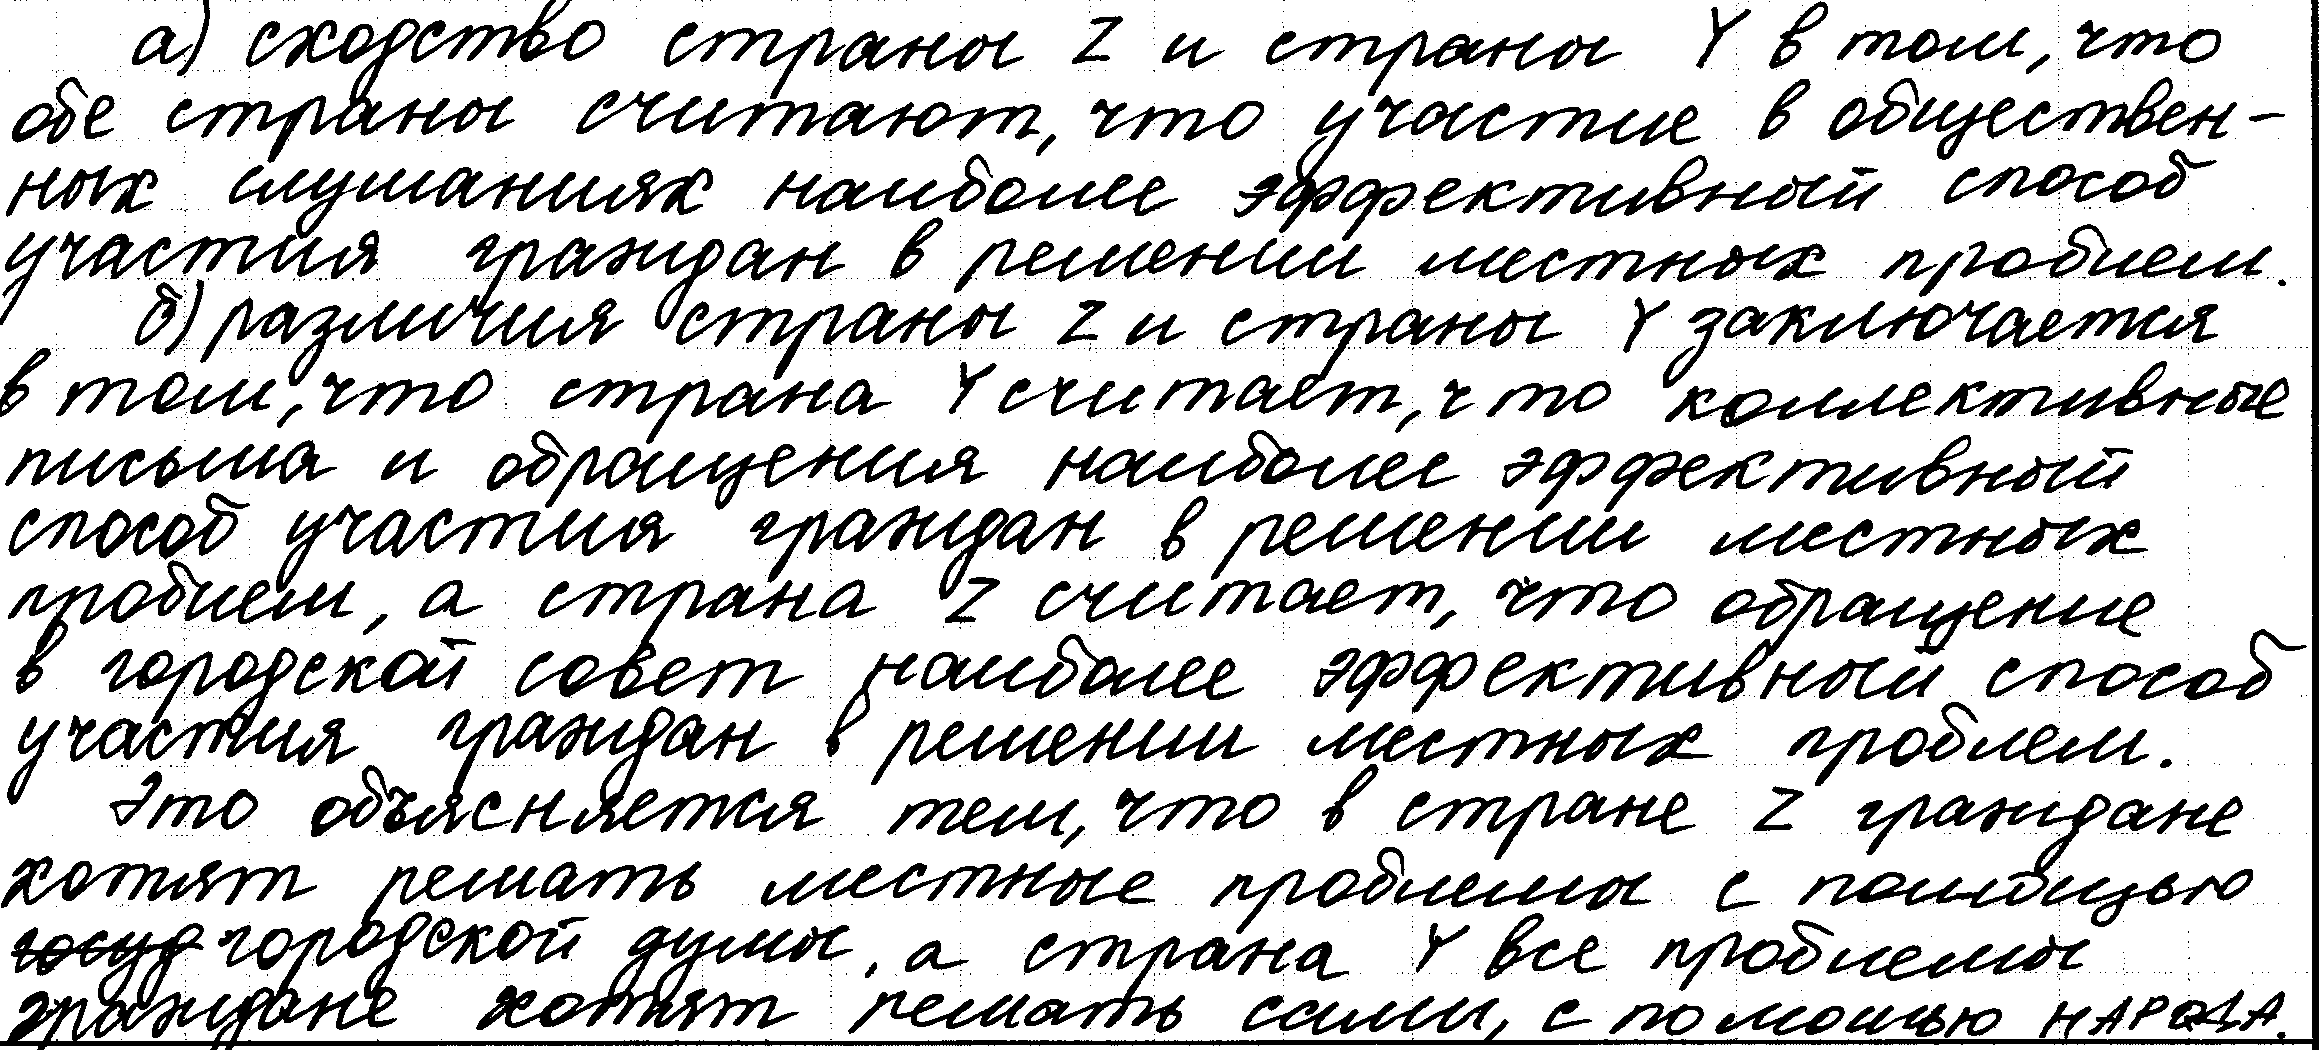 а) сходство страны Z и страны Y в том, что
обе страны считают, что участие в обществен-
ных слушаниях наиболее эффективный способ
участия граждан в решении местных проблем.
б) различия страны Z и страны Y заключается
в том, что страна Y считает, что коллективные
письма и обращения наиболее эффективный
способ участия граждан в решении местных
проблем, а страна Z считает, что обращение
в городской совет наиболее эффективный способ
участия граждан в решении местных проблем.
Это объясняется тем, что в стране Z граждане
хотят решать местные проблемы с помощью
госуд городской думы, а страна Y все проблемы
граждане хотят решать сами, с помощью НАРОДА.